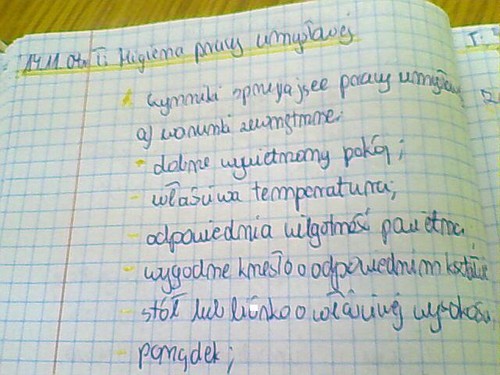 14.11.04r. T: Higiena pracy umysłowej
czynniki sprzyjające pracy umysłow
a) warunki zewnętrzne:
- dobrze wywietrzony pokój;
- właściwa temperatura;
- odpowiednia wilgotność powietrza
- wygodne krzesło o odpowiednim kształcie
- stół lub biurko o właściwej wysokości
- porządek;
T: